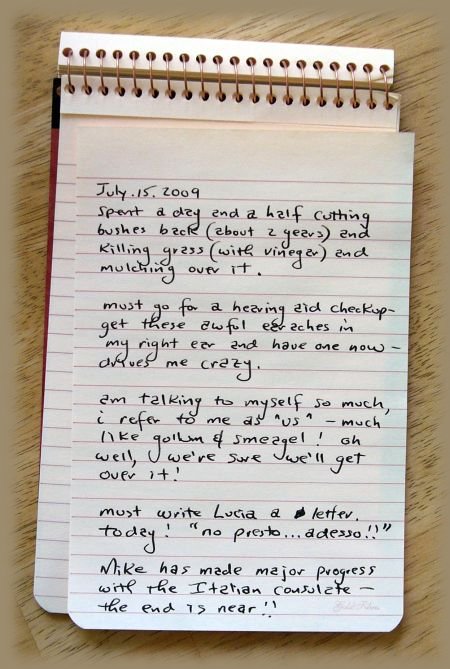 July.15.2009
spent a day and a half cutting
bushes back (about 2 years) and
killing grass (with vinegar) and
mulching over it.
must go for a hearing aid checkup-
get these awful earaches in
my right ear and have one now -
drives me crazy.
am talking to myself so much,
i refer to me as "us" - much
like gollum & smeagel! oh
well, we're sure we'll get
over it!
must write Lucia a letter.
today! "no presto...adesso!!"
Mike has made major progress
with the Italian consulate -
the end is near!!
Gold Fibre